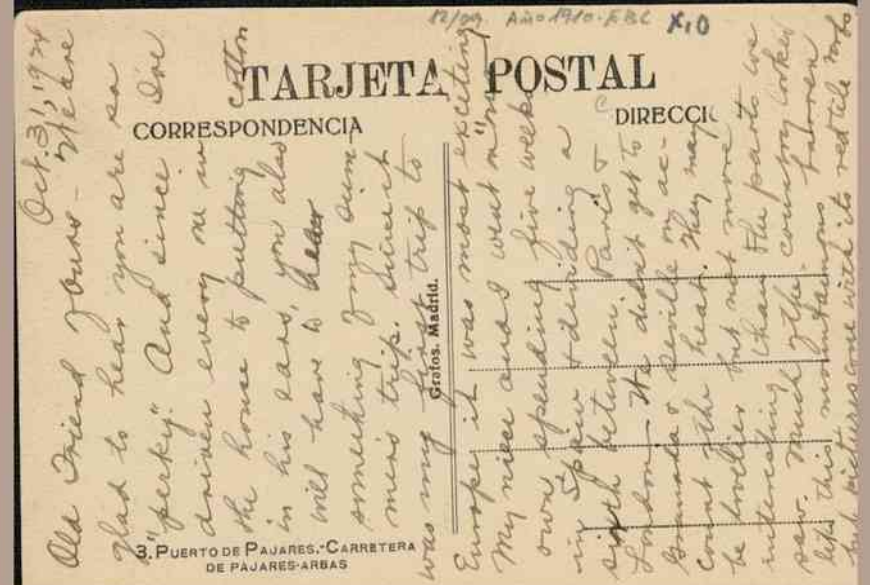 12/09. Año 1910. FBL X,0
TARJETA POSTAL
CORRESPONDENCIA
DIRECCIÓ
Grafos. Madrid.
3. PUERTO DE PAJARES.-CARRETERA
DE PAJARES-ARBAS
Oct. 31, 1924
Old Friend of yours - We are
glad to hear you are so
"perky." And since I've
driven every one in
the house to putting cotton
in his ears, you also
will have to hear
something of my sum-
mers trip. Since it
was my first trip to
Europe it was most exciting
My niece and I went "on our
own" spending five weeks
in Spain & dividing a
sixth between Paris &
London - We didn't get to
Granada & Seville on ac-
count of the heat. They may
be lovelier but not more
interesting than the parts we
saw. Much of the country looked
like this mountainous barren
but picturesque with its red tile roofs